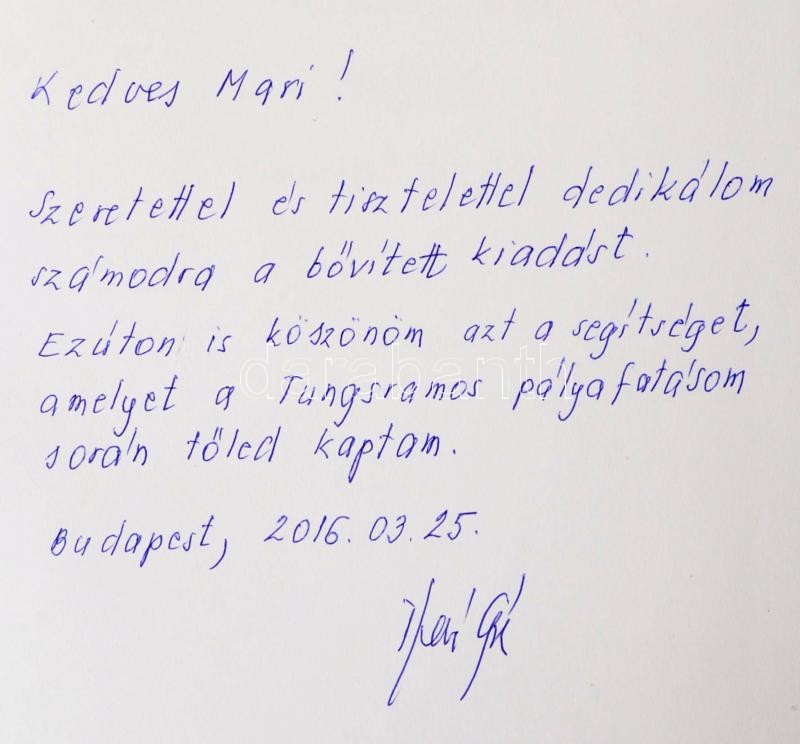 Kedves Mari!
Szeretettel és tisztelettel dedikálom
számodra a bővített kiadást.
Ezúton is köszönöm azt a segítséget,
darabanth
amelyet a Tungsramos pályafutásom
során tőled kaptam.
Budapest, 2016. 03. 25.